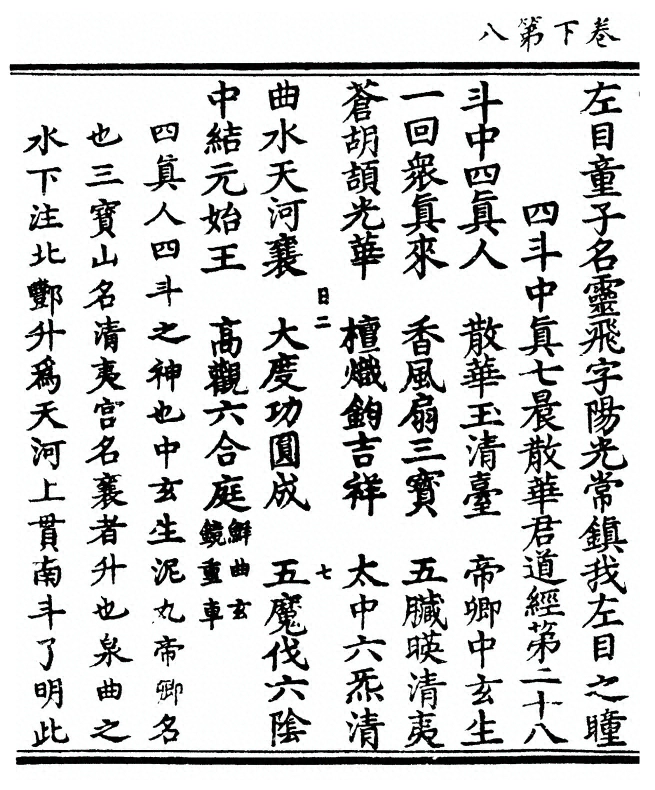 卷下第八
左目童子名靈飛字陽光常鎮我左目之瞳
四斗中眞七晨散華君道經第二十八
斗中四眞人 散華玉清臺 帝卿中玄生
一回衆眞來 香風扇三寶 五臟暎清夷
蒼胡頡光華 檀熾鈞吉祥 太中六炁清
日二 七
曲水天河襄 大度功圓成 五魔伐六陰
中結元始王 高觀六合庭 鮮曲玄鏡重車
四眞人四斗之神也中玄生泥丸帝卿名
也三寶山名清夷宮名襄者升也泉曲之
水下注北酆升爲天河上貫南斗了明此